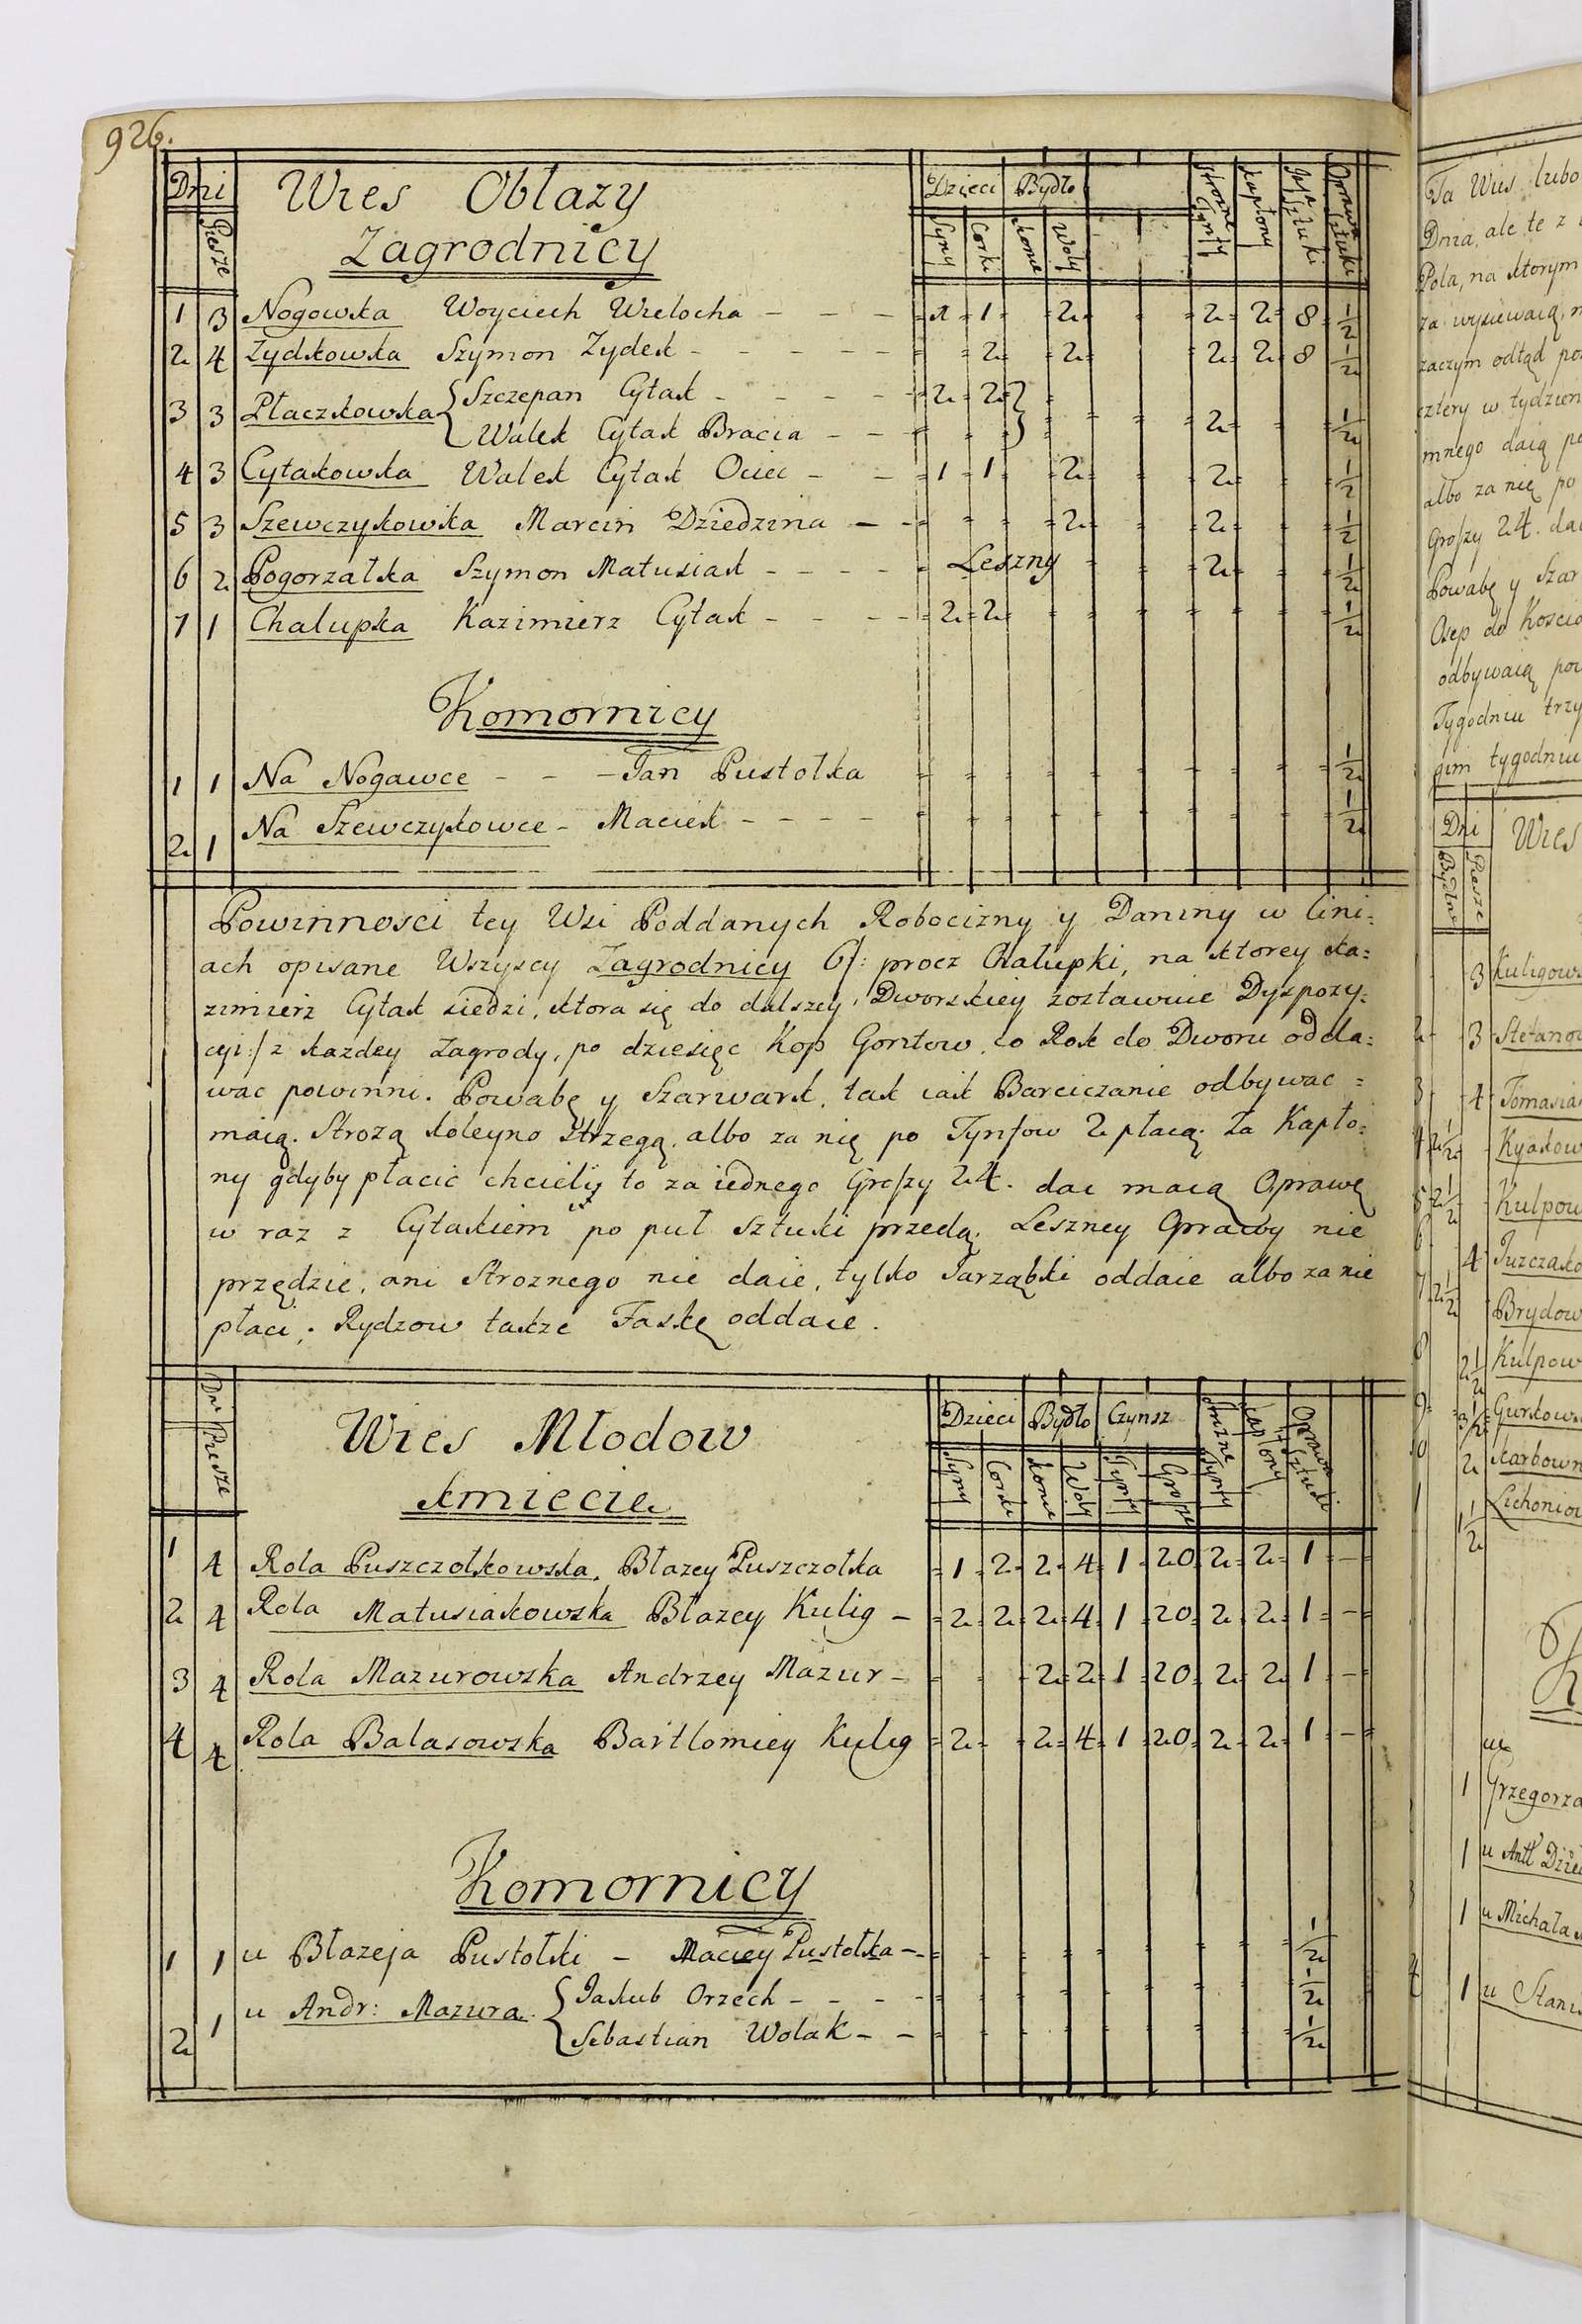 926.
Dni Wies Obłazy Dzieci Bydło Strozne Tynfy Kapłony Jaja Sztuki Oprawa Sztuki
Piesze Zagrodnicy Syny Corki Konie Woły
1 3 Nogowska Woyciech Wielocha - - - 1 1 2 2 2 8 1/2
2 4 Zydkowska Szymon Zydek - - - - - 2 2 2 2 8 1/2
3 3 Płaczkowska { Szczepan Cytak - - - - - 2 2 }
Walek Cytak Bracia - - - 2 1/2
4 3 Cytakowska Walek Cytak Ociec - - 1 1 2 2 1/2
5 3 Szewczykowska Marcin Dziedzina - - 2 2 1/2
6 2 Pogorzałska Szymon Matusiak - - - - - Leszny 2 1/2
7 1 Chalupska Kazimierz Cytak - - - - 2 2 1/2
Komornicy
1 1 Na Nogawce - - - Jan Pustołka 1/2
2 1 Na Szewczykowce - Maciek - - - - 1/2
Powinnosci tey Wsi Poddanych Robocizny y Daniny w Lini=
ach opisane Wszyscy Zagrodnicy 6/: procz Chałupki, na ktorey Ka=
zimierz Cytak siedzi, ktora się do dalszey Dworskiey zostawuie Dyspozy=
cyi:/ z kazdey Zagrody, po dziesięc Kop Gontow, co Rok do Dworu odda=
wac powinni. Powabę y Szarwark, tak iak Barciczanie odbywac =
maią. Strozą koleyno strzegą, albo za nię po Tynfow 2 płacą. Za Kapło=
ny gdyby płacic chcieli to za iednego Groszy 24. dac maią Oprawę
w raz z Cytakiem po puł Sztuki przedą. Leszney Oprawy nie
przędzie, ani Stroznego nie daie, tylko Jarząbki oddaie albo za nie
płaci, Rydzow takze Faskę oddaie.
Dni Piesze Wies Młodow Dzieci Bydło Czynsz Strozne Tynfy Kapłony Oprawa Sztuki
Kmiecie Syny Corki Konie Woły Tynfy Grosze
1 4 Rola Puszczołkowska. Błazey Puszczołka 1 2 2 4 1 20 2 2 1 -
2 4 Rola Matusiakowska Błazey Kulig - 2 2 2 4 1 20 2 2 1 -
3 4 Rola Mazurowska Andrzey Mazur - 2 2 1 20 2 2 1 -
4 4 Rola Balasowska Bartlomiey Kulig 2 2 4 1 20 2 2 1 -
Komornicy
1 1 u Błazeja Pustołki - Maciey Pustołka - 1/2
2 1 u Andr: Mazura { Jakub Orzech - - - - 1/2
Sebastian Wolak - - 1/2
Ta Wies lubo
Dnia, ale te z
Pola, na ktorym
za wysiewaią, n
zaczym odtąd po
cztery w tydzien
mnego daią po
albo za nię po
Groszy 24. da
Powabę y Szar
Osep do Koscio
odbywaią pow
Tygodniu trzy
gim tygodniu
Dni Wies
Bydłne Piesze
3 Kuligows
2 3 Stefanow
3 4 Tomasia
4 2 1/2 Kyakow
5 2 1/2 Kulpow
6 4 Juzczako
7 2 1/2 Brydow
8 2 1/2 Kulpow
9 3 1/2 Gurkows
10 2 Karbown
1 1/2 Lichoniow
K
1 Grzegorza
1 u Ant Dzie
1 u Michała
1 u Stani